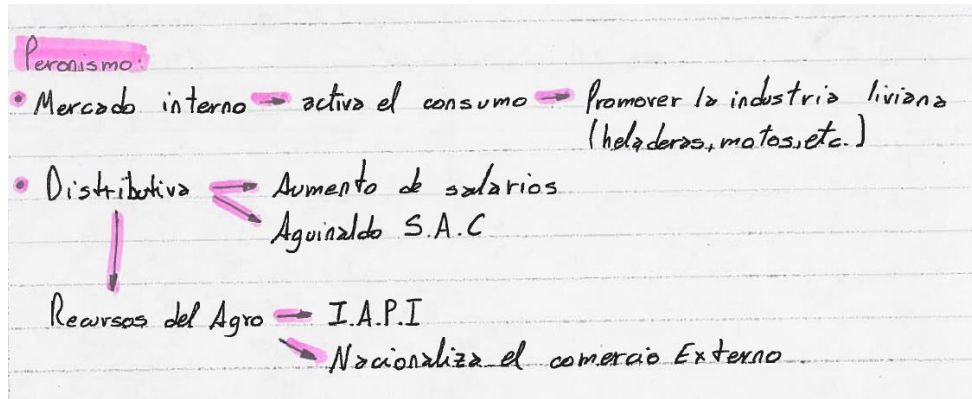 Peronismo:
• Mercado interno → activa el consumo → Promover la industria liviana
(heladeras, motos, etc.)
• Distributiva → Aumento de salarios
Aguinaldo S.A.C
Recursos del Agro → I.A.P.I
Nacionaliza el comercio Externo.